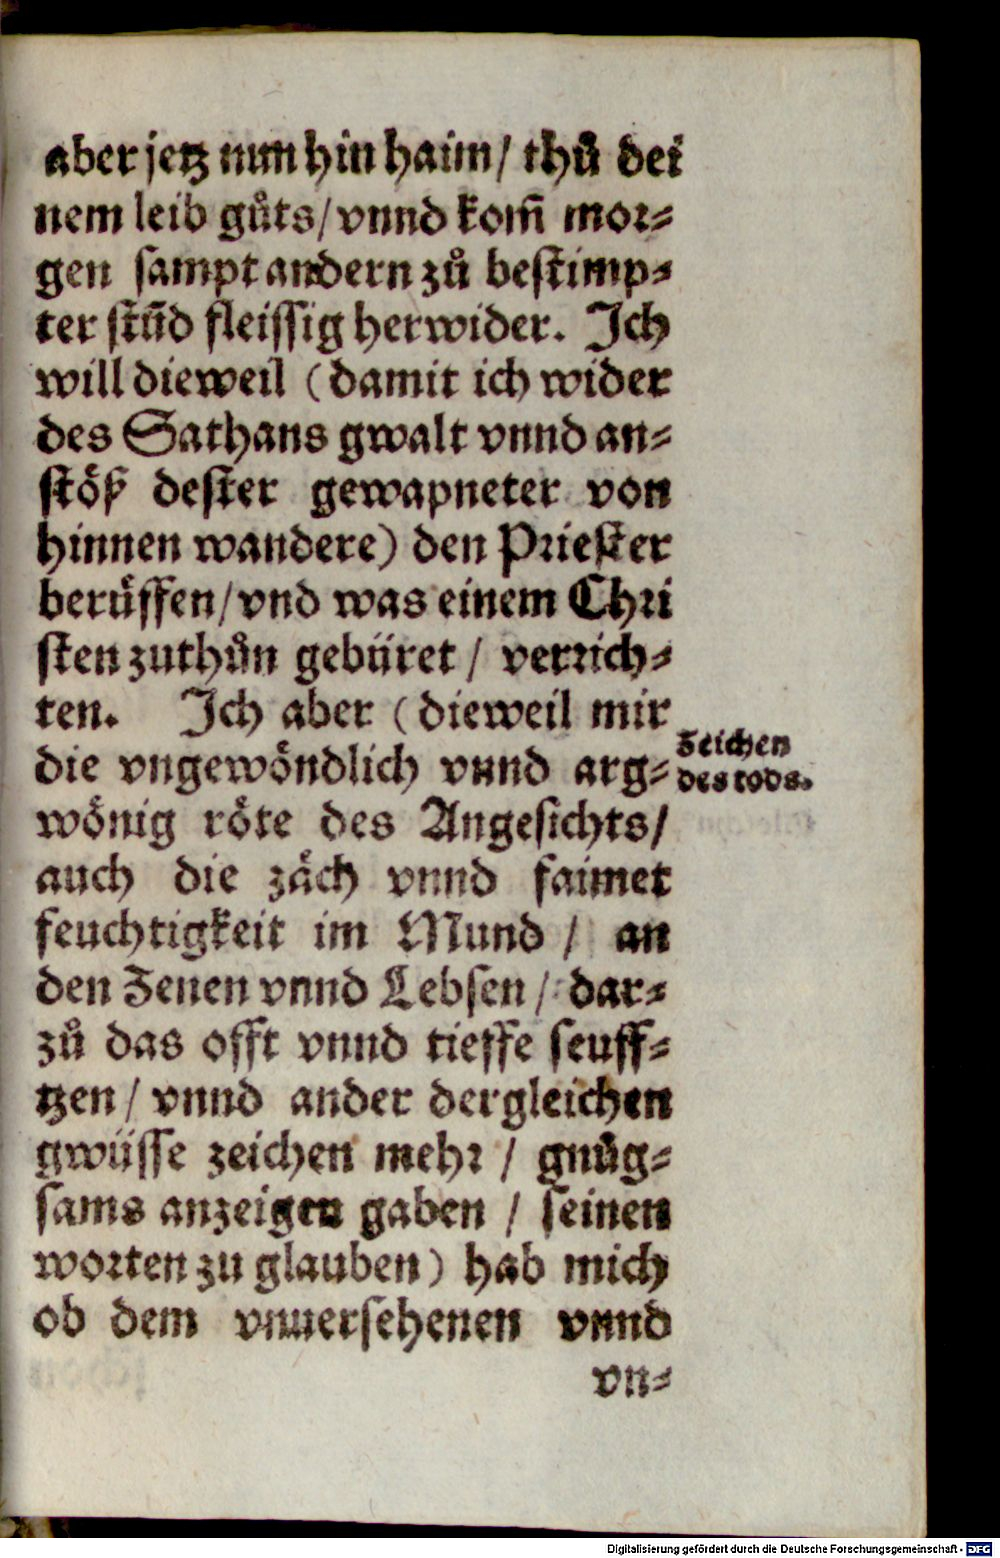 aber jetz nun hin haim / thuͦ dei
nem leib guͦts / vnnd kom̃ mor⸗
gen sampt andern zuͦ bestimp⸗
ter stũd fleissig herwider. Ich
will dieweil (damit ich wider
des Sathans gwalt vnnd an⸗
stoͤß dester gewapneter von
hinnen wandere) den Priester
beruͤffen / vnd was einem Chri
sten zuthuͦn gebüret / verrich⸗
ten. Ich aber (dieweil mir
die vngewoͤndlich vnnd arg⸗
woͤnig roͤte des Angesichts /
auch die zaͤch vnnd faimet
feuchtigkeit im Mund / an
den Zenen vnnd Lebsen / dar⸗
zuͦ das offt vnnd tieffe seuff⸗
tzen / vnnd ander dergleichen
gwüsse zeichen mehr / gnuͦg⸗
sams anzeigen gaben / seinen
worten zu glauben) hab mich
ob dem vnuersehenen vnnd
vn⸗
Zeichen
des tods.
Digitalisierung gefördert durch die Deutsche Forschungsgemeinschaft - DFG